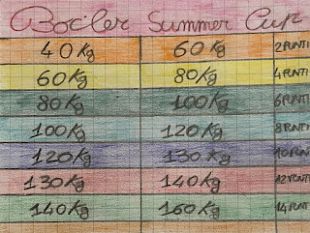 Boc'ler Summer Cup
40Kg 60Kg 2 PUNTI
60Kg 80Kg 4 PUNTI
80Kg 100Kg 6 PUNTI
100Kg 120Kg 8 PUNTI
120Kg 130Kg 10 PUNTI
130Kg 140Kg 12 PUNTI
140Kg 160Kg 14 PUNTI